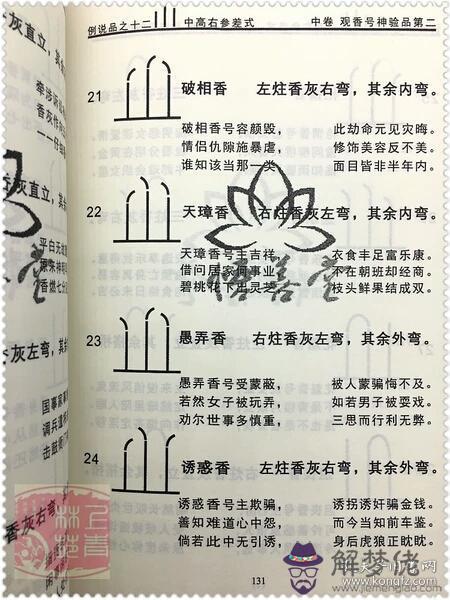 例说品之十二
中高右参差式
中卷 观香号神验品第二
21
破相香 左炷香灰右弯，其余内弯。
破相香号容颜毁， 此劫命元见灾晦。
情侣仇隙施暴虐， 修饰美容反不美。
谁知该当那一类， 面目皆非半年内。
22
天璋香 右炷香灰左弯，其余内弯。
天璋香号主吉祥， 衣食丰足富乐康。
借问居家何事业， 不在朝班却经商。
碧桃花下出灵芝， 枝头鲜果结成双。
23
愚弄香 右炷香灰右弯，其余外弯。
愚弄香号受蒙蔽， 被人蒙骗悔不及。
若然女子被玩弄， 如若男子被耍戏。
劝尔世事多慎重， 三思而行利无弊。
24
诱惑香 左炷香灰右弯，其余外弯。
诱惑香号主欺骗， 诱拐诱奸骗金钱。
善知难道心中怨， 而今当知前车鉴。
倘若此中无引诱， 身后虎狼正眈眈。
131
灰直立，
灰直立，
灰左弯，
香灰右弯，
解梦佬
www.jiemenglao.com